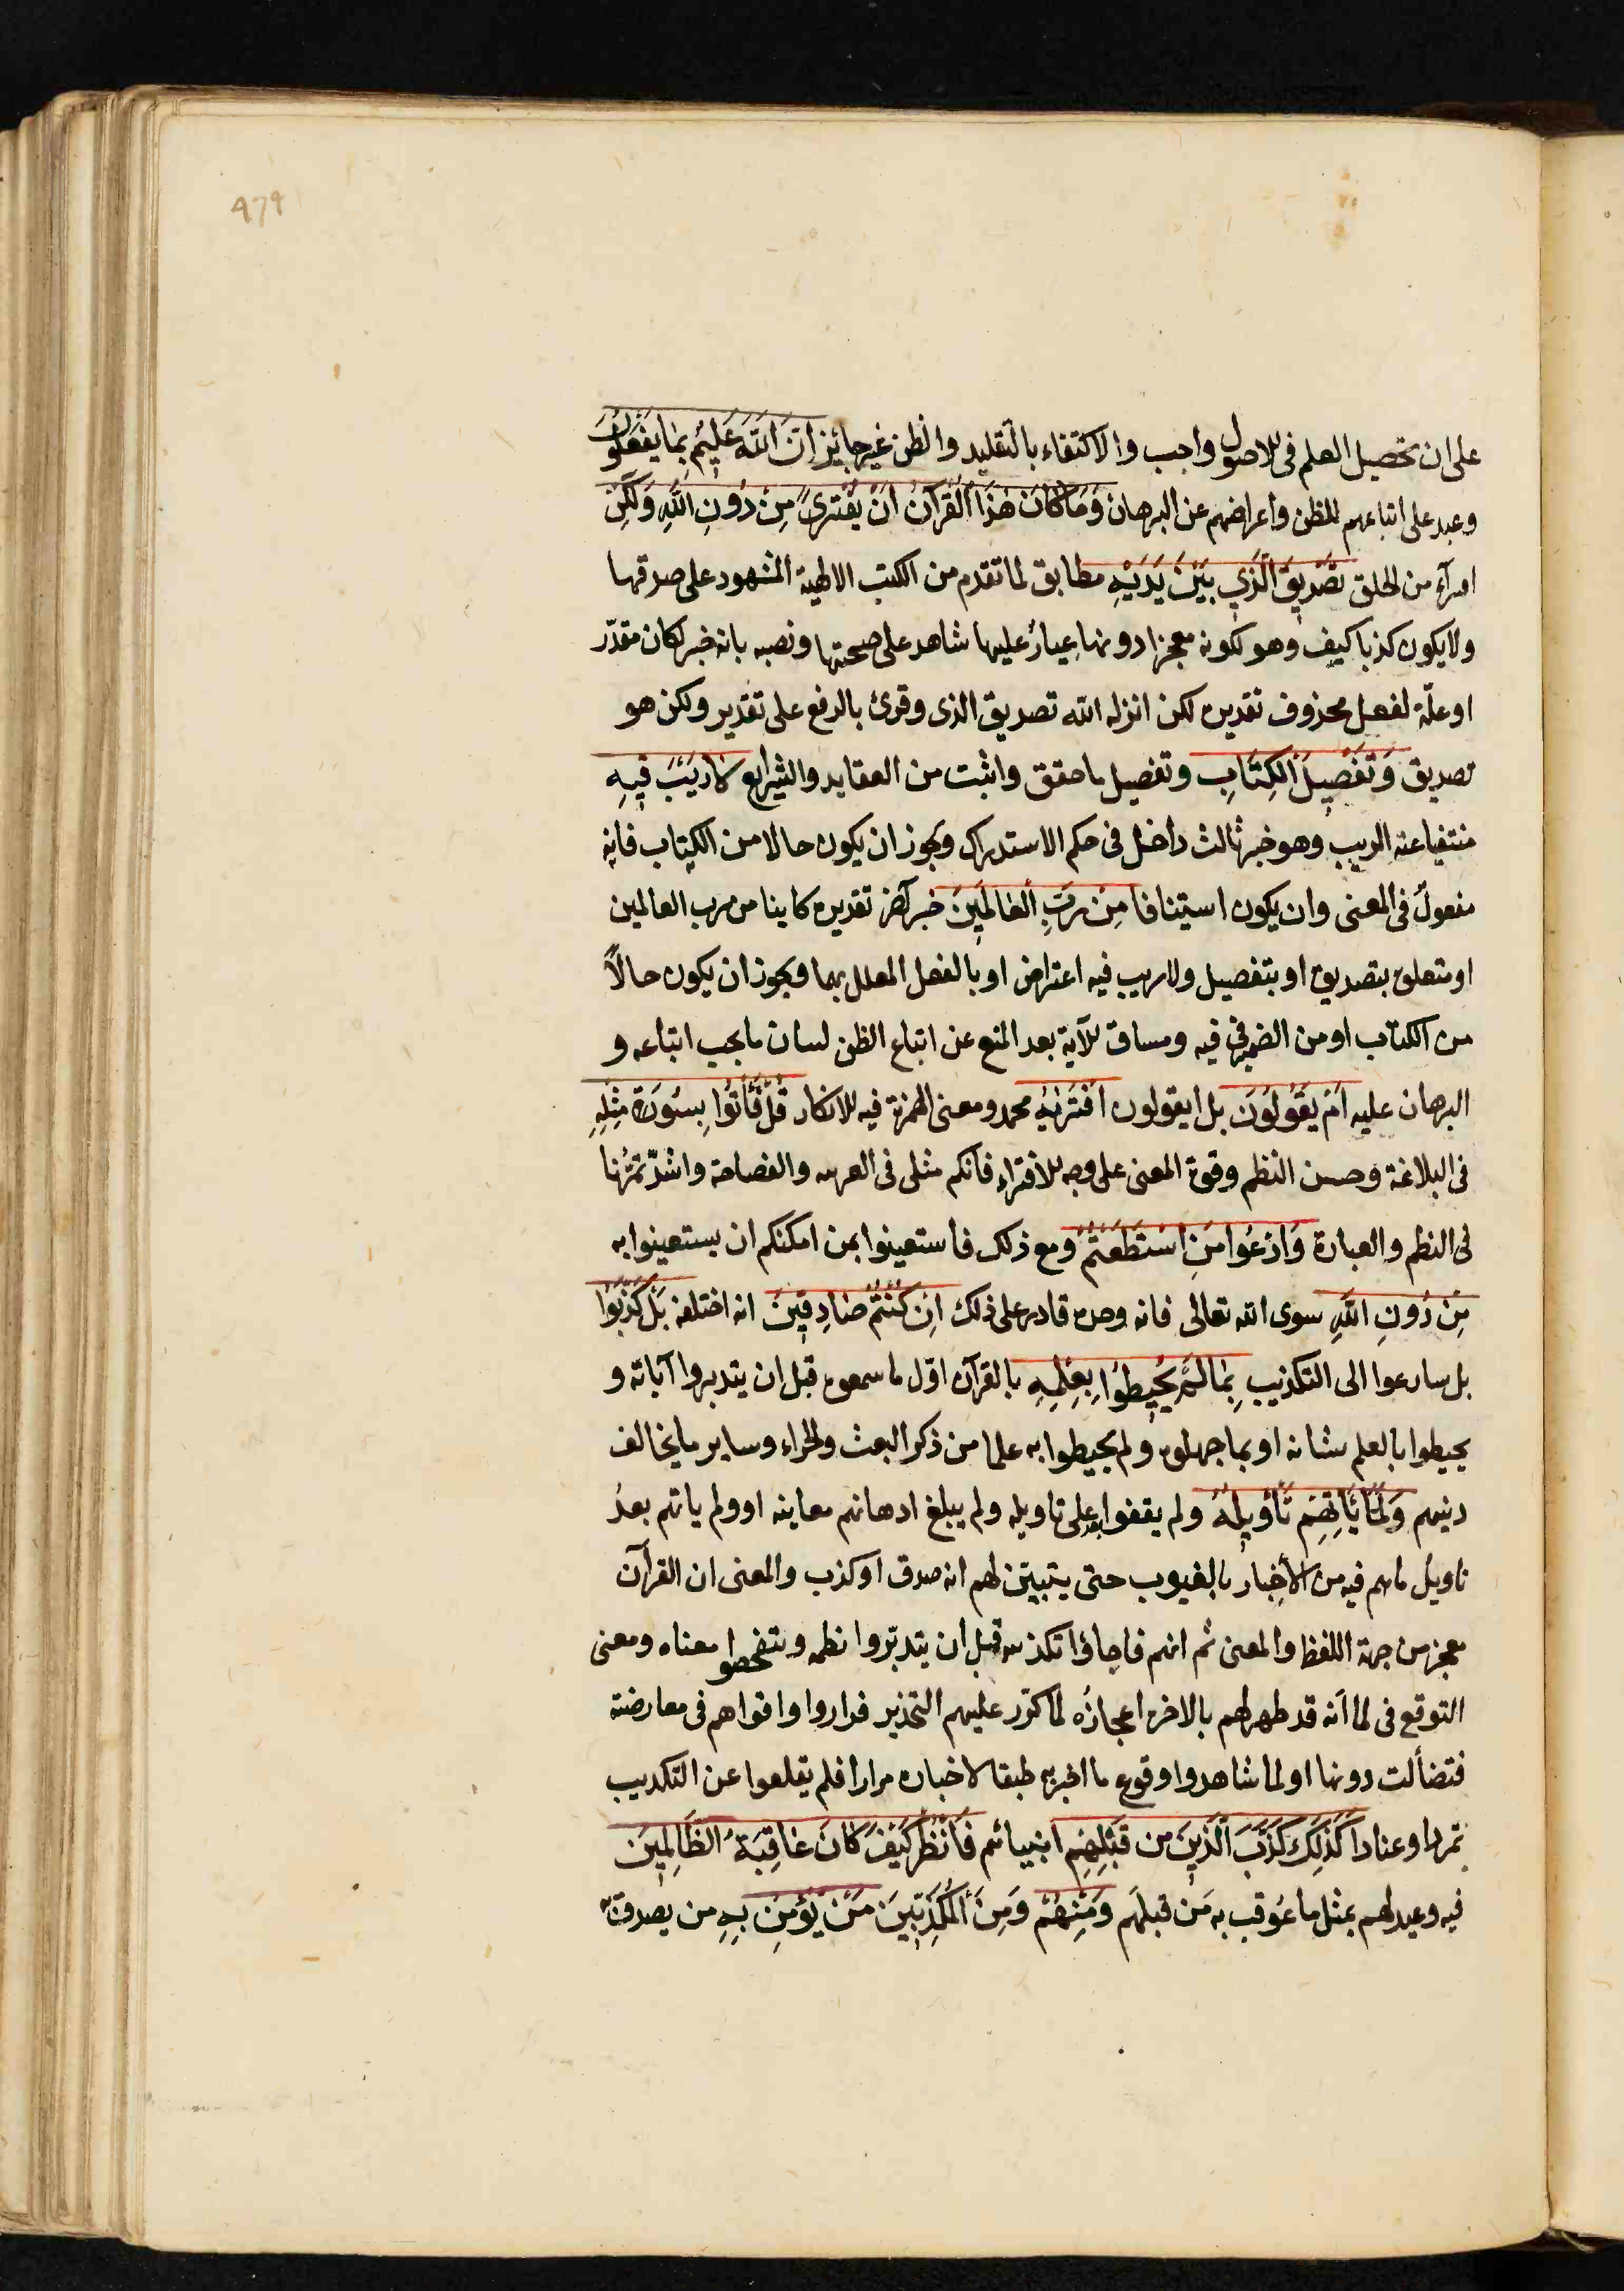 ٩٦٩
على ان تحصيل العلم فى الاصول واجب والاكتفاء بالتقليد والظن غير جايز اِنَّ اللّٰهَ عَلِيمٌ بِمَا يَفْعَلُونَ
وعيد على اتباعهم للظن واعراضهم عن البرهان وَمَا كَانَ هٰذَا الْقُرْآنُ اَنْ يُفْتَرٰى مِنْ دُونِ اللّٰهِ وَلٰكِنْ
افتراء من الخلق تَصْدِيقَ الَّذِي بَيْنَ يَدَيْهِ مطابق لما تقدم من الكتب الالهية المشهود على صدقها
ولا يكون كذبا كيف وهو لكونه معجزا دونها عِيارٌ عليها شاهد على صحتها ونصبه بانه خبر لكان مقدّر
او علّة لفعل محذوف تقديره لكن انزله الله تصديق الذى وقرئ بالرفع على تقدير ولكن هو
تصديق وَتَفْصِيلَ الْكِتَابِ وتفصيل ما حقق واثبت من العقايد والشرايع لَا رَيْبَ فِيهِ
منتفيا عنه الريب وهو خبر ثالث داخل فى حكم الاستدراك ويجوز ان يكون حالا من الكتاب فانه
مفعولٌ فى المعنى وان يكون استينافا مِنْ رَبِّ الْعَالَمِينَ خبر آخر تقديره كاينا من رب العالمين
او متعلق بتصديق او بتفصيل ولا ريب فيه اعتراض او بالفعل المعلل بهما ويجوز ان يكون حالاً
من الكتاب او من الضمير فى فيه ومساق للآية بعد المنع عن اتباع الظن لبيان ما يجب اتباعه و
البرهان عليه اَمْ يَقُولُونَ بل ايقولون افْتَرٰيهُ محمد ومعنى الهمزة فيه للانكار قُلْ فَأْتُوا بِسُورَةٍ مِثْلِهِ
فى البلاغة وحسن النظم وقوة المعنى على وجه للافتراء فانكم مثلى فى العربيه والفصاحة واشدّ تمرُّنا
فى النظم والعبارة وَادْعُوا مَنِ اسْتَطَعْتُمْ ومع ذلك فاستعينوا بمن امكنكم ان يستعينوا به
مِنْ دُونِ اللّٰهِ سوى الله تعالى فانه وحده قادر على ذلك اِنْ كُنْتُمْ صَادِقِينَ انه اختلقه بَلْ كَذَّبُوا
بل سارعوا الى التكذيب بِمَا لَمْ يُحِيطُوا بِعِلْمِهِ بالقرآن اوّل ما سمعوه قبل ان يتدبروا آياته و
يحيطوا بالعلم بشانه او بما جهلوه ولم يحيطوا به علما من ذكر البعث والجزاء وساير ما يخالف
دينهم وَلَمَّا يَأْتِهِمْ تَأْوِيلُهُ ولم يقفوا بعد على تاويله ولم يبلغ اذهانهم معانيه او ولم ياتهم بعدُ
تاويل ما فيه من الأخبار بالغيوب حتى يتبيّن لهم انه صدق او كذب والمعنى ان القرآن
معجز من جهة اللفظ والمعنى ثم انهم فاجاؤا تكذيبه قبل ان يتدبّروا نظمه ويتفحصوا معناه ومعنى
التوقع فى لما أنه قد ظهر لهم بالاخرة اعجازُه لما كرّر عليهم التحدّى فرازوا واقواهم فى معارضته
فتضألت دونها او لما شاهدوا وقوع ما اخبر به طبقا لاخباره مرارا فلم يقلعوا عن التكذيب
تمردا وعنادا كَذٰلِكَ كَذَّبَ الَّذِينَ مِن قَبْلِهِمْ انبيائهم فَانْظُرْ كَيْفَ كَانَ عَاقِبَةُ الظَّالِمِينَ
فيه وعيد لهم بمثل ما عُوقب به مَن قبلَهم وَمِنْهُمْ وَمِنَ الْمُكَذِّبِينَ مَنْ يُؤْمِنُ بِهِ من يصدق به